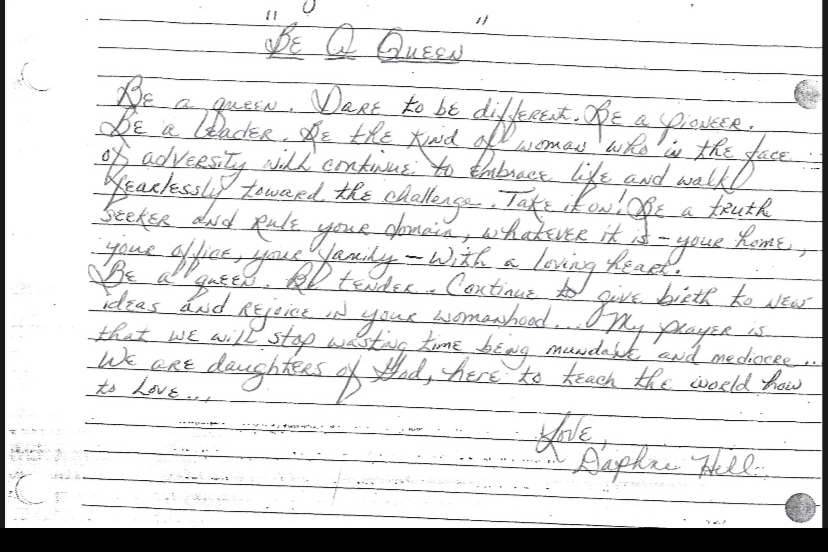 "Be A Queen"
Be a queen. Dare to be different. Be a pioneer.
Be a leader. Be the kind of woman who in the face
of adversity will continue to embrace life and walk
fearlessly toward the challenge. Take it on! Be a truth
seeker and rule your domain, whatever it is - your home,
your office, your family - with a loving heart.
Be a queen. Be tender. Continue to give birth to new
ideas and rejoice in your womanhood... My prayer is
that we will stop wasting time being mundane and mediocre...
We are daughters of God, here to teach the world how
to love...
Love,
Daphne Hill